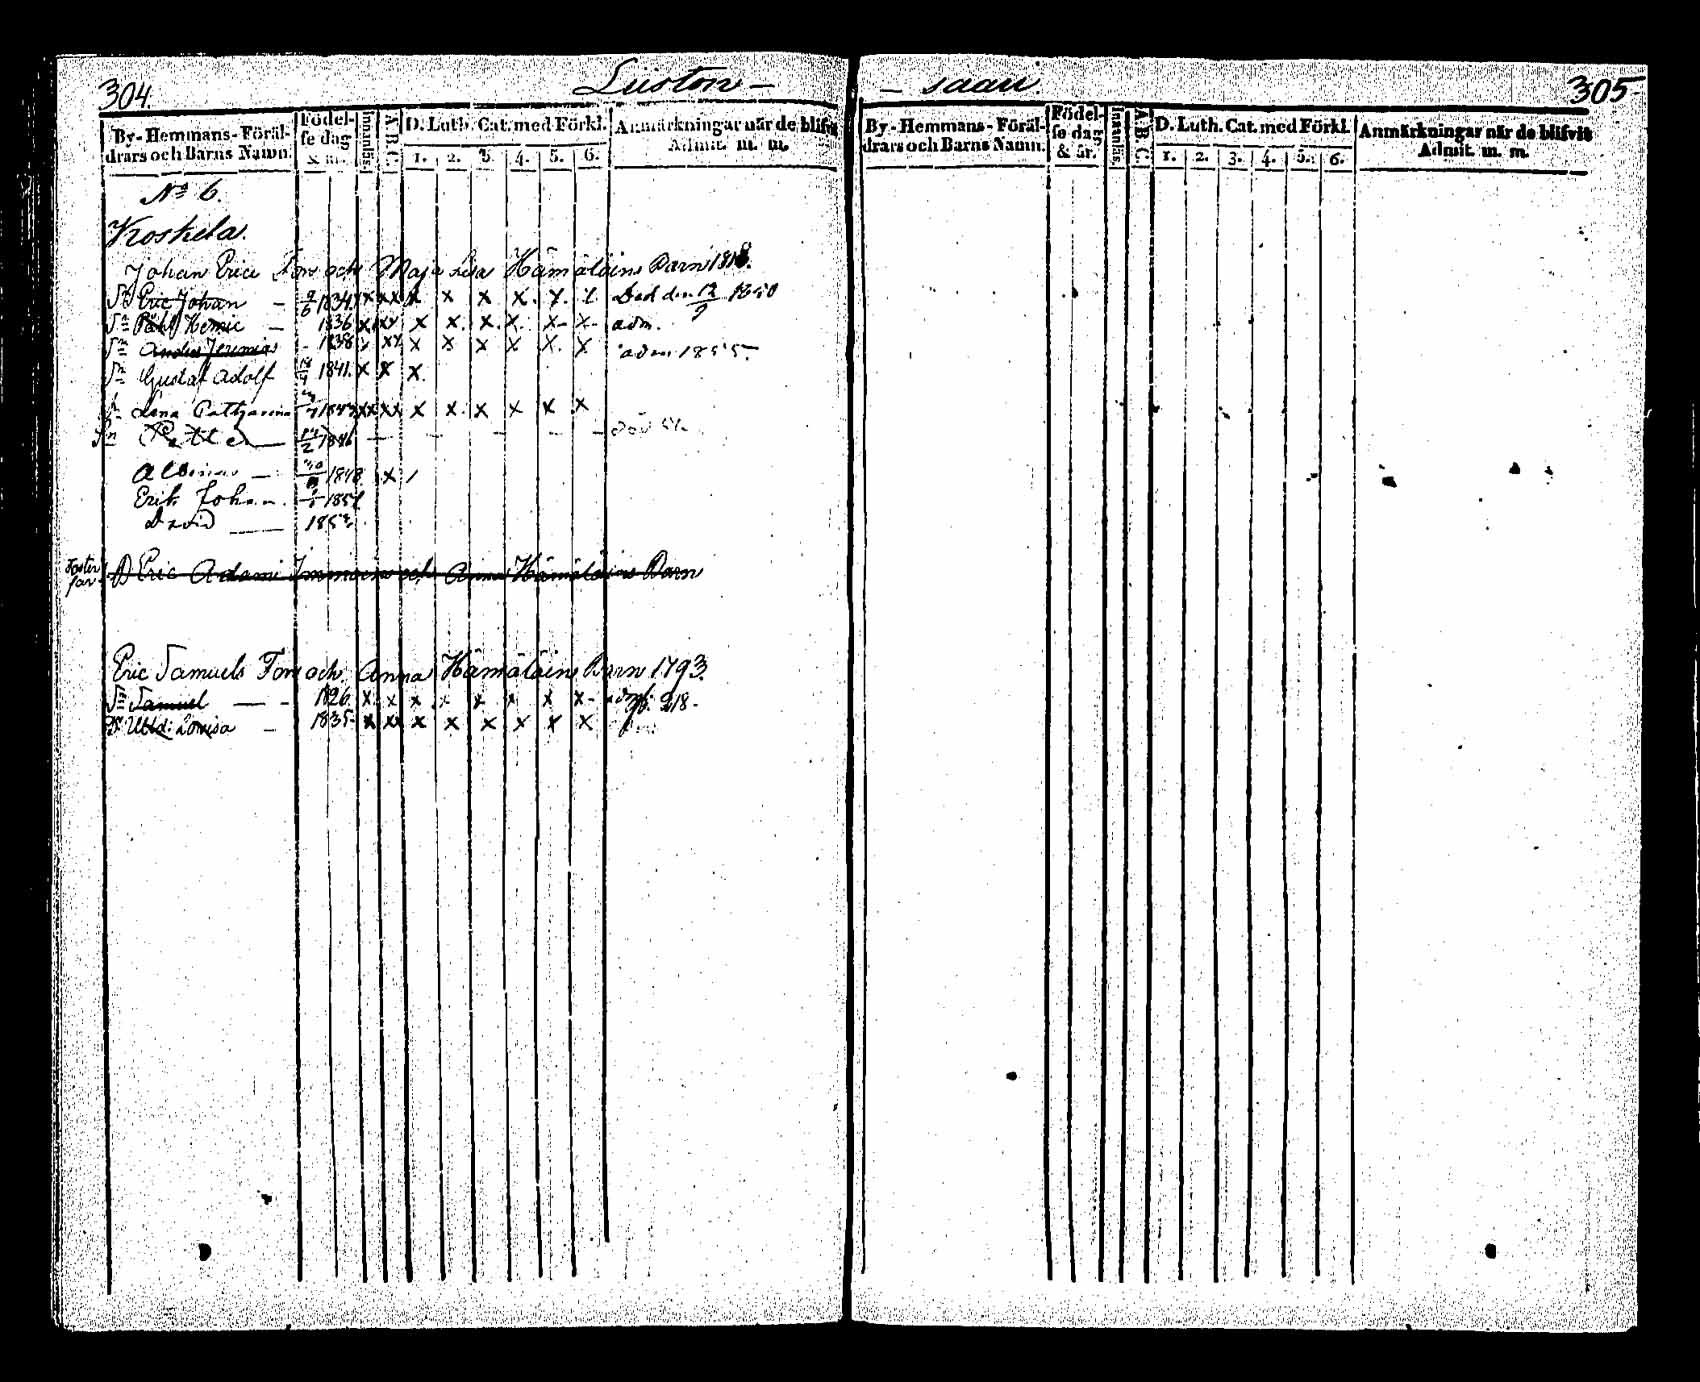 304
Liiston -
By-Hemmans-Föräl-
drars och Barns Namn.
Födel-
se dag
& år.
Innanläs.
A B C.
D. Luth. Cat. med Förkl.
1. 2. 3. 4. 5. 6.
Anmärkningar när de blifvit
Admit. m. m.
No 6.
Koskela.
Johan Erics Son och Maja Lisa Hämäläins Barn 1818.
Sn Eric Johan - 1834 x xx x x x x. x. x Död den 12/9 1850
Sn Påhl Henric - 1836 x xx x x. x. x. x- x- adm.
Sn Anders Jeremias - 1838 xx x x x x x. x adm 1855.
Sn Gustaf Adolf 1841. x x x.
Lena Catharina xx xx x x. x x x x
Sn Petter 1846 - - - - -
Albinus - 1848 x
Erik Johan. 1851
David 185
Foster
far
Eric Adami Immoin och Anna Hämäläins Barn
Eric Samuels Son och Anna Hämäläins Barn 1793.
Sn Samuel - 1826. x x x x x x x x- 218-
Dr Ulld: Lovisa - 1835- x xx x x x x x x
- saari.
305
By-Hemmans-Föräl-
drars och Barns Namn.
Födel-
se dag
& år.
Innanläs.
A B C.
D. Luth. Cat. med Förkl.
1. 2. 3. 4. 5. 6.
Anmärkningar när de blifvit
Admit. m. m.